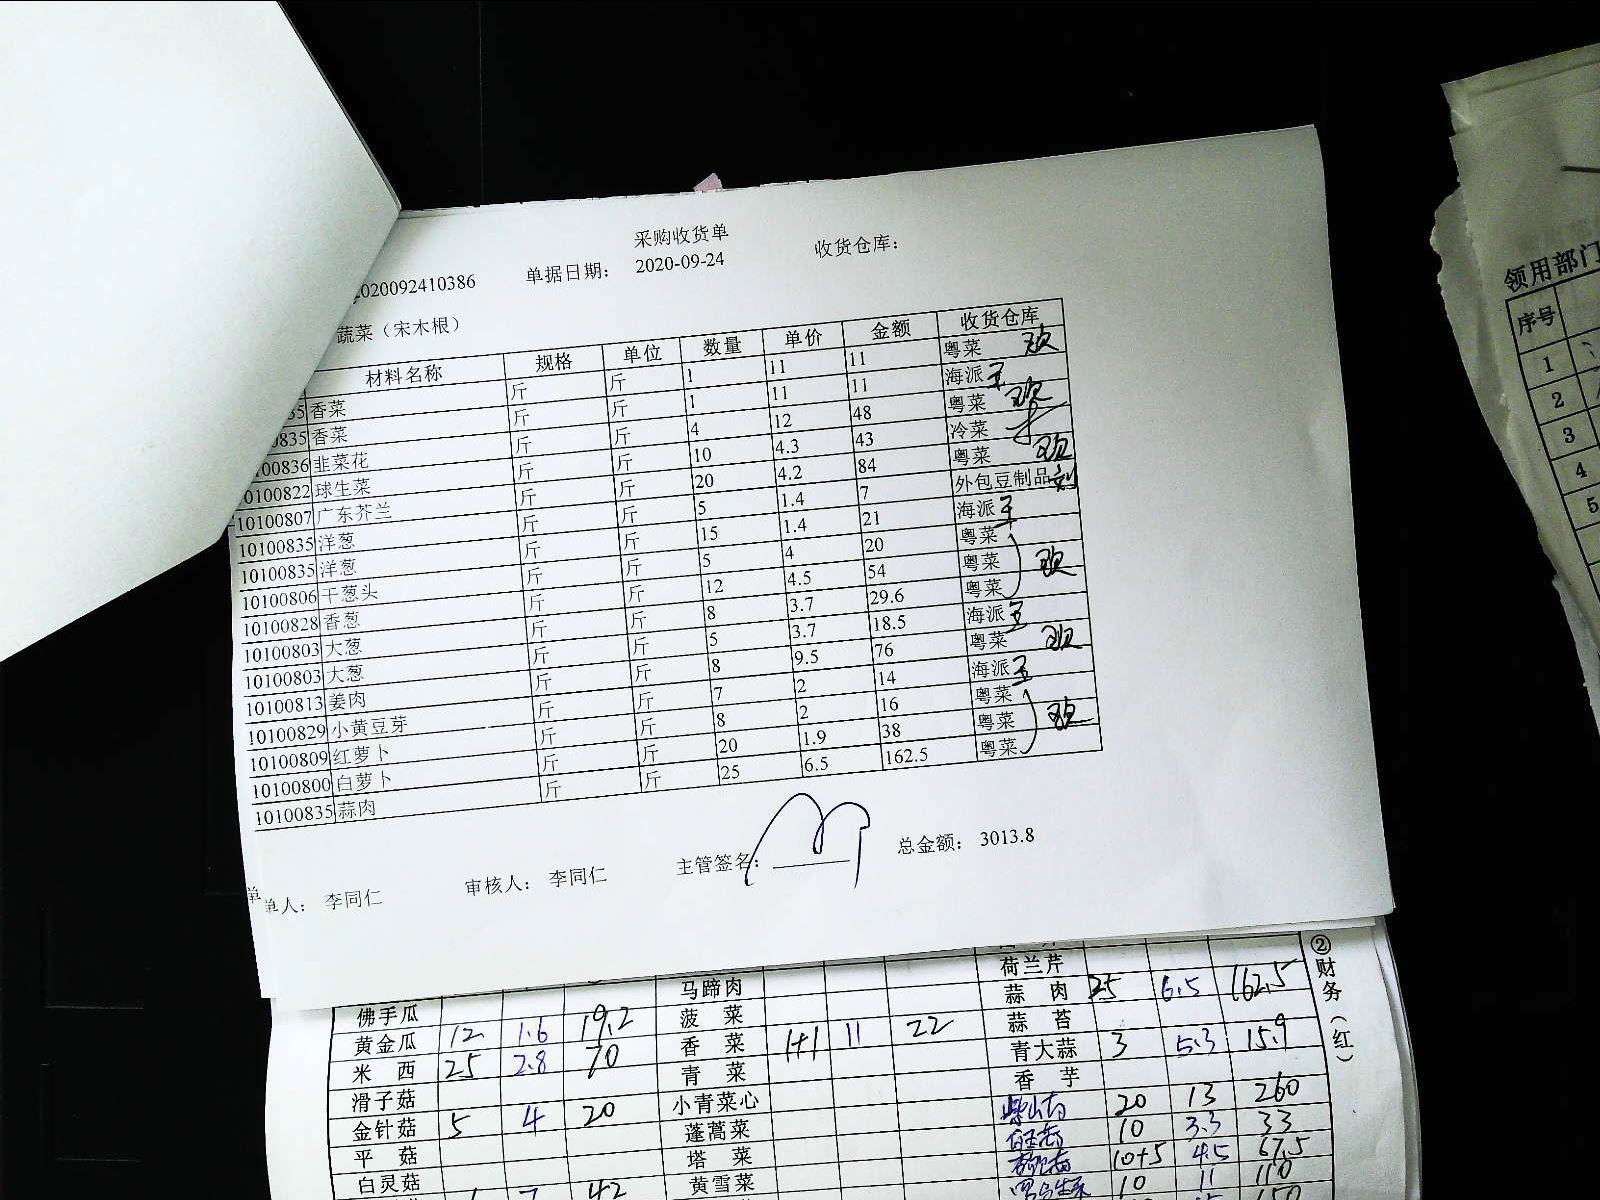 采购收货单
2020092410386 单据日期： 2020-09-24 收货仓库：
蔬菜（宋木根）
材料名称 规格 单位 数量 单价 金额 收货仓库
35 香菜 斤 斤 1 11 11 粤菜
0835 香菜 斤 斤 1 11 11 海派 王
100836 韭菜花 斤 斤 4 12 48 粤菜
0100822 球生菜 斤 斤 10 4.3 43 冷菜
10100807 广东芥兰 斤 斤 20 4.2 84 粤菜
10100835 洋葱 斤 斤 5 1.4 7 外包豆制品
10100835 洋葱 斤 斤 15 1.4 21 海派 王
10100806 干葱头 斤 斤 5 4 20 粤菜
10100828 香葱 斤 斤 12 4.5 54 粤菜
10100803 大葱 斤 斤 8 3.7 29.6 粤菜
10100803 大葱 斤 斤 5 3.7 18.5 海派 王
10100813 姜肉 斤 斤 8 9.5 76 粤菜
10100829 小黄豆芽 斤 斤 7 2 14 海派 王
10100809 红萝卜 斤 斤 8 2 16 粤菜
10100800 白萝卜 斤 斤 20 1.9 38 粤菜
10100835 蒜肉 斤 斤 25 6.5 162.5 粤菜
单人： 李同仁 审核人： 李同仁 主管签名： 总金额： 3013.8
荷兰芹
马蹄肉 蒜肉 25 6.5 162.5
佛手瓜 菠菜 蒜苔
黄金瓜 12 1.6 19.2 香菜 1+1 11 22 青大蒜 3 5.3 15.9
米西 25 2.8 70 青菜 香芋
滑子菇 小青菜心 柴山药 20 13 260
金针菇 5 4 20 蓬蒿菜 10 3.3 33
平菇 塔菜 10+5 4.5 67.5
白灵菇 黄雪菜 10 11 110
7 42 150
②财务（红）
领用部门
序号
1
2
3
4
5